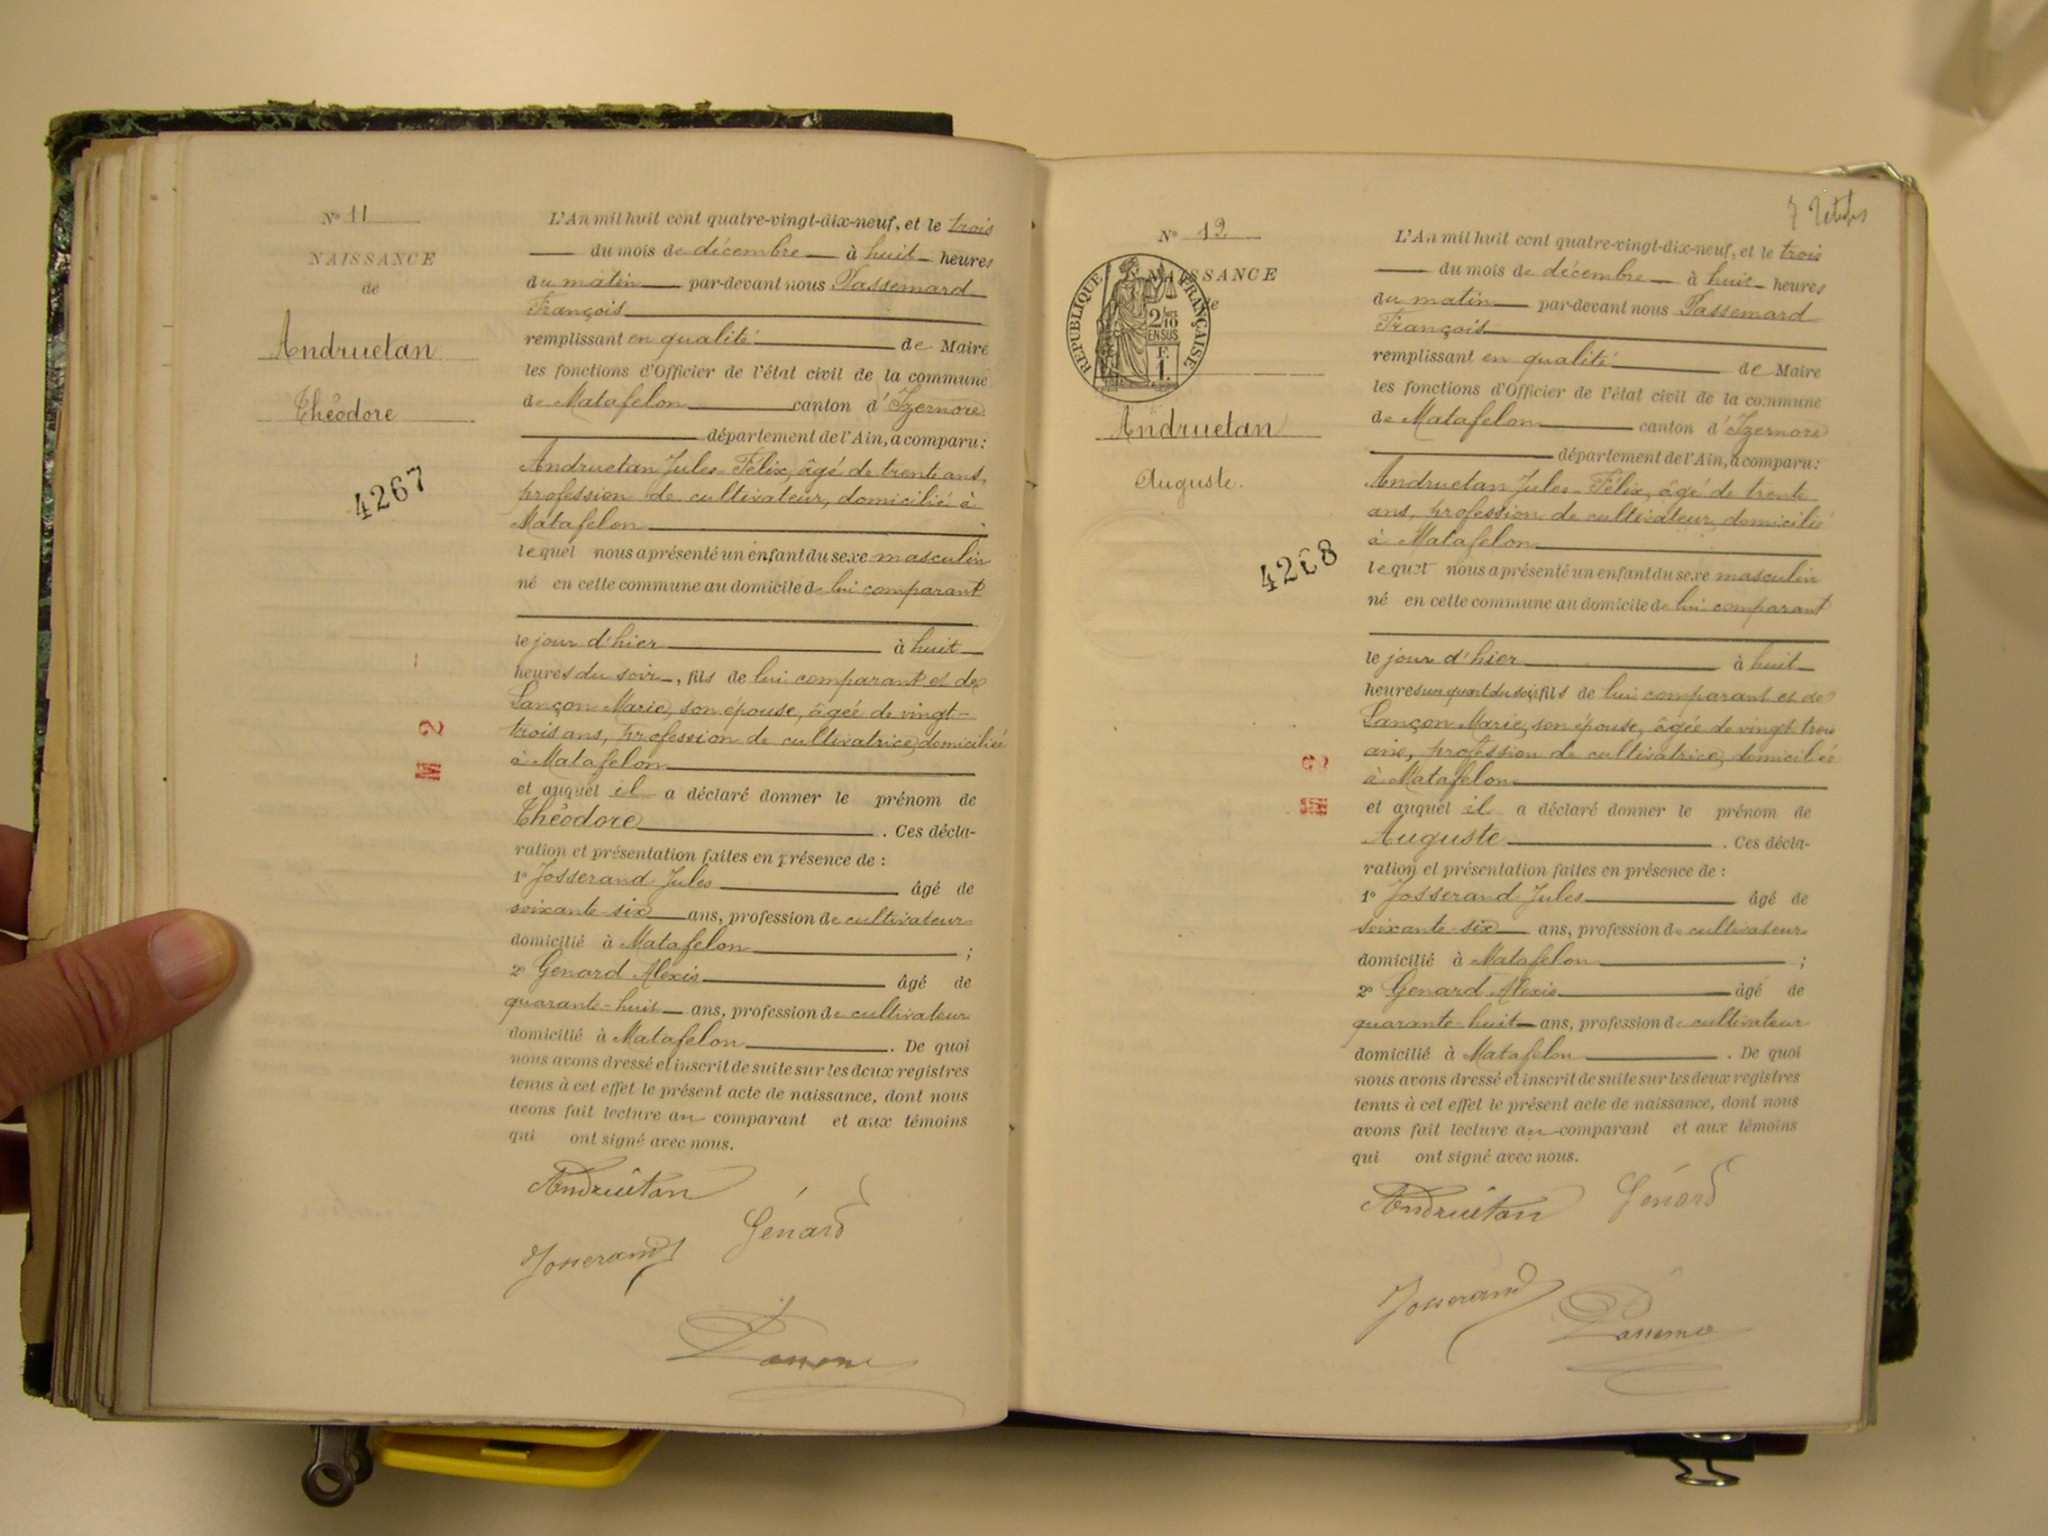 N° 11
NAISSANCE
de
Andruetan
Théodore
4267
M 2
L'An mil huit cent quatre-vingt-dix-neuf, et le trois
du mois de décembre à huit heures
du matin par-devant nous Passemard
François
remplissant en qualité de Maire
les fonctions d'Officier de l'état civil de la commune
de Matafelon canton d'Izernore
département de l'Ain, a comparu:
Andruetan Jules-Félix, âgé de trente ans,
profession de cultivateur, domicilié à
Matafelon
lequel nous a présenté un enfant du sexe masculin
né en cette commune au domicile de lui comparant
le jour d'hier à huit
heures du soir, fils de lui comparant et de
Lançon Marie, son épouse, âgée de vingt-
trois ans, profession de cultivatrice, domiciliée
à Matafelon
et auquel il a déclaré donner le prénom de
Théodore. Ces décla-
ration et présentation faites en présence de :
1° Josserand Jules âgé de
soixante-six ans, profession de cultivateur
domicilié à Matafelon ;
2° Genard Alexis âgé de
quarante-huit ans, profession de cultivateur
domicilié à Matafelon. De quoi
nous avons dressé et inscrit de suite sur les deux registres
tenus à cet effet le présent acte de naissance, dont nous
avons fait lecture au comparant et aux témoins
qui ont signé avec nous.
Andruétan
Génard
Josserand
7
N° 12
NAISSANCE
de
RÉPUBLIQUE FRANÇAISE
2/10
EN SUS
F.
1.
Andruetan
Auguste.
4268
M 2
L'An mil huit cent quatre-vingt-dix-neuf, et le trois
du mois de décembre à huit heures
du matin par-devant nous Passemard
François
remplissant en qualité de Maire
les fonctions d'Officier de l'état civil de la commune
de Matafelon canton d'Izernore
département de l'Ain, a comparu:
Andruetan Jules-Félix, âgé de trente
ans, profession de cultivateur, domicilié
à Matafelon
lequel nous a présenté un enfant du sexe masculin
né en cette commune au domicile de lui comparant
le jour d'hier à huit
heures un quart du soir, fils de lui comparant et de
Lançon Marie, son épouse, âgée de vingt-trois
ans, profession de cultivatrice, domiciliée
à Matafelon
et auquel il a déclaré donner le prénom de
Auguste. Ces décla-
ration et présentation faites en présence de :
1° Josserand Jules âgé de
soixante-six ans, profession de cultivateur
domicilié à Matafelon ;
2° Genard Alexis âgé de
quarante-huit ans, profession de cultivateur
domicilié à Matafelon. De quoi
nous avons dressé et inscrit de suite sur les deux registres
tenus à cet effet le présent acte de naissance, dont nous
avons fait lecture au comparant et aux témoins
qui ont signé avec nous.
Andruétan
Génard
Josserand